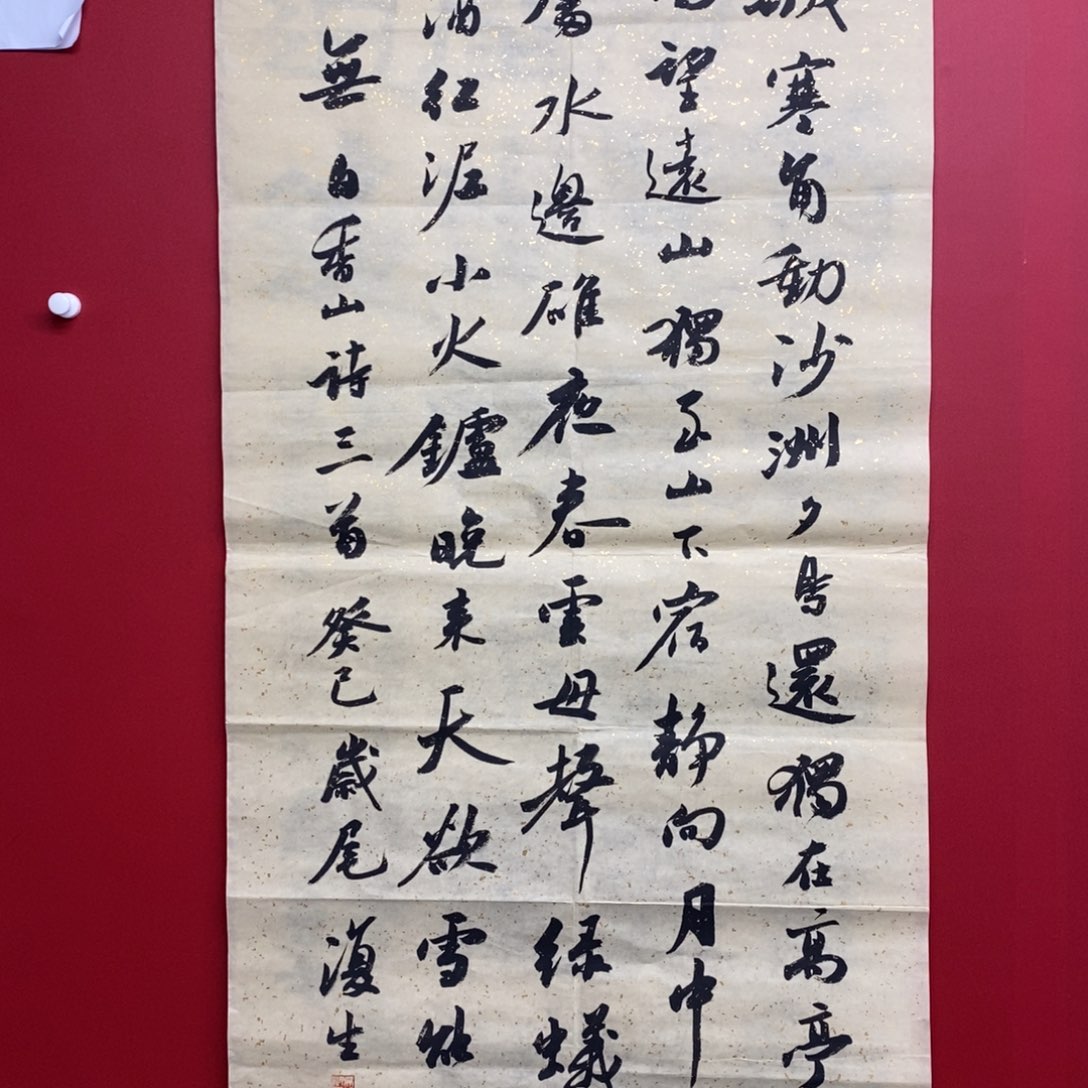 城寒角動沙洲夕鳥還獨在高亭
望遠山獨至山下宿靜向月中
處水邊碓夜舂雲母聲綠蟻
酒紅泥小火鑪晚来天欲雪能
無 白香山詩三首 癸巳歲尾 生